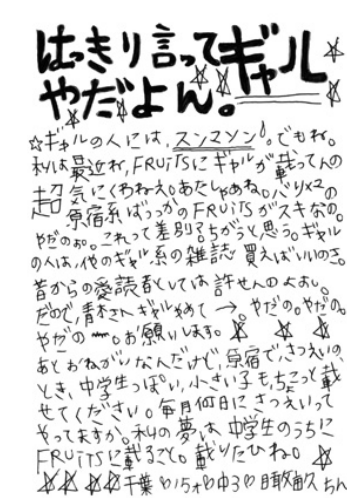 はっきり言ってギャル
やだよん。
☆ギャルの人には、スンマソン。でもね。
私は最近ね、FRUiTSにギャルが載ってんの
超気にくわねえ。あたしゃね。バリバリの
原宿系ばっかのFRUiTSがスキなの。
やだのぉ。これって差別?ちがうと思う。ギャル
の人は、他のギャル系の雑誌買えばいいのさ。
昔からの愛読者としては許せんのよぉい。
だので、青木さんギャルやめて→。やだの。やだの。
やだの〜。お願いします。☆ ☆ ☆
あとおねがいなんだけど、原宿で、さつえいの、
とき、中学生っぽい、小さい子もちょこっと載
せてください。毎月何日にさつえいって
やってますか。私の夢は、中学生のうちに
FRUiTSに載ること。載りたひね。☆
☆☆☆☆千葉 15才 中3 ちん